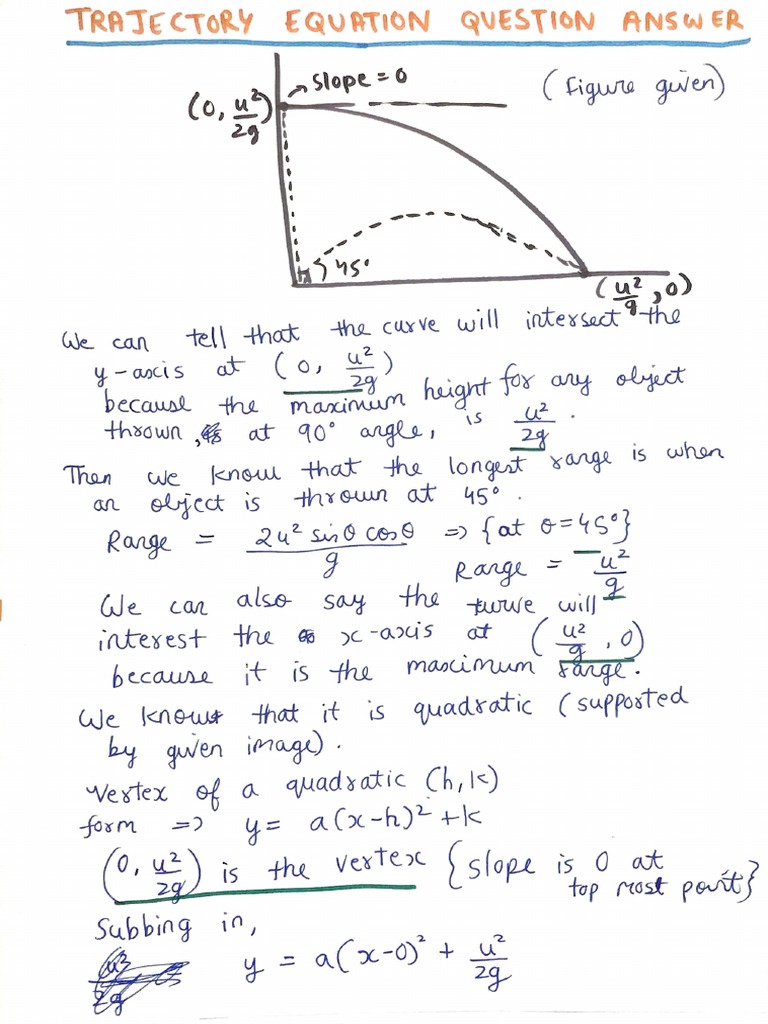 TRAJECTORY EQUATION QUESTION ANSWER
slope = 0
(Figure given)
(0, u²/2g)
45°
(u²/g, 0)
We can tell that the curve will intersect the
y-axis at (0, u²/2g)
because the maximum height for any object
thrown, at 90° angle, is u²/2g.
Then we know that the longest range is when
an object is thrown at 45°.
Range = 2u² sinθ cosθ/g => {at θ=45°}
Range = u²/g
We can also say the curve will
interest the x-axis at (u²/g, 0)
because it is the maximum range.
We know that it is quadratic (supported
by given image).
Vertex of a quadratic (h,k)
form => y = a(x-h)² + k
(0, u²/2g) is the vertex {slope is 0 at
top most point}
Subbing in,
y = a(x-0)² + u²/2g